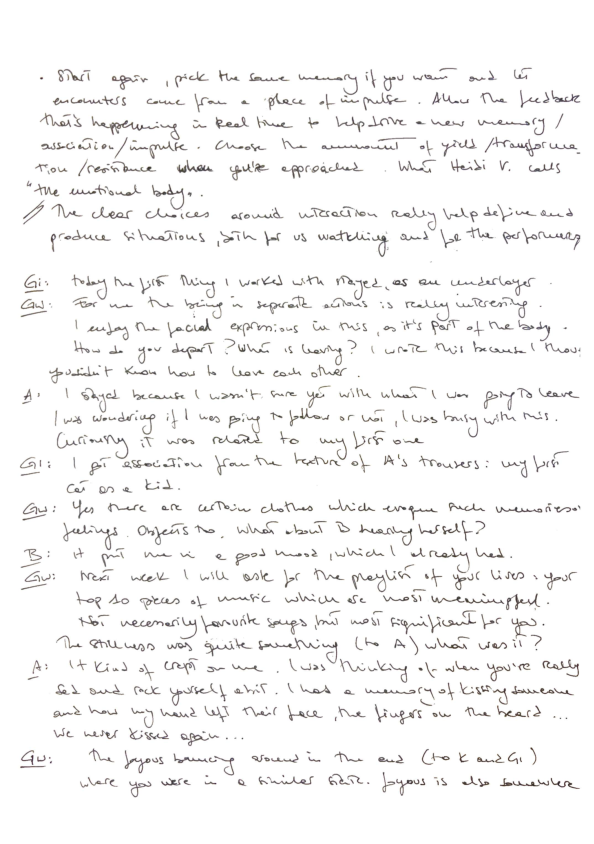 . Start again, pick the same memory if you want and let
encounters come from a place of impulse. Allow the feedback
that's happening in real time to help drive a new memory/
association/impulse. Choose the ammount of yield/transforma-
tion/resistance when you're approached. What Heidi V. calls
"the emotional body".
// The clear choices around interaction really help define and
produce situations, both for us watching and for the performers
Gi: today the first thing I worked with stayed, as an underlayer.
GW: For me the being in separate actions is really interesting.
I enjoy the facial expressions in this, as it's part of the body.
How do you depart? What is leaving? I wrote this because I thou
you didn't know how to leave each other.
A: I stayed because I wasn't sure yet with what I was going to leave
I was wondering if I was going to follow or not, I was busy with this.
Curiously it was related to my first one
GI: I got association from the texture of A's trousers: my first
cat as a kid.
GW: Yes there are certain clothes which evoque such memories or
feelings. Objects too. What about B hearing herself?
B: it put me in a good mood, which I already had.
GW: Next week I will ask for the playlist of your lives: your
top 10 pieces of music which are most meaningful.
Not necessarily favourite songs, but most significant for you.
The stillness was quite something (to A) what was it?
A: It kind of crept on me. I was thinking of when you're really
sad and rock yourself a bit. I had a memory of kissing someone
and how my hand left their face, the fingers on the beard ...
We never kissed again ...
GW: The joyous bouncing around in the end (to K and GI)
where you were in a similar state. Joyous is also somewhere